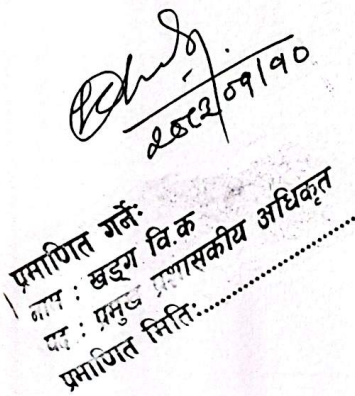 २०८२/०१/१०
प्रमाणित गर्ने:
नाम : खड्ग वि.क
पद : प्रमुख प्रशासकीय अधिकृत
प्रमाणित मिति:..............................